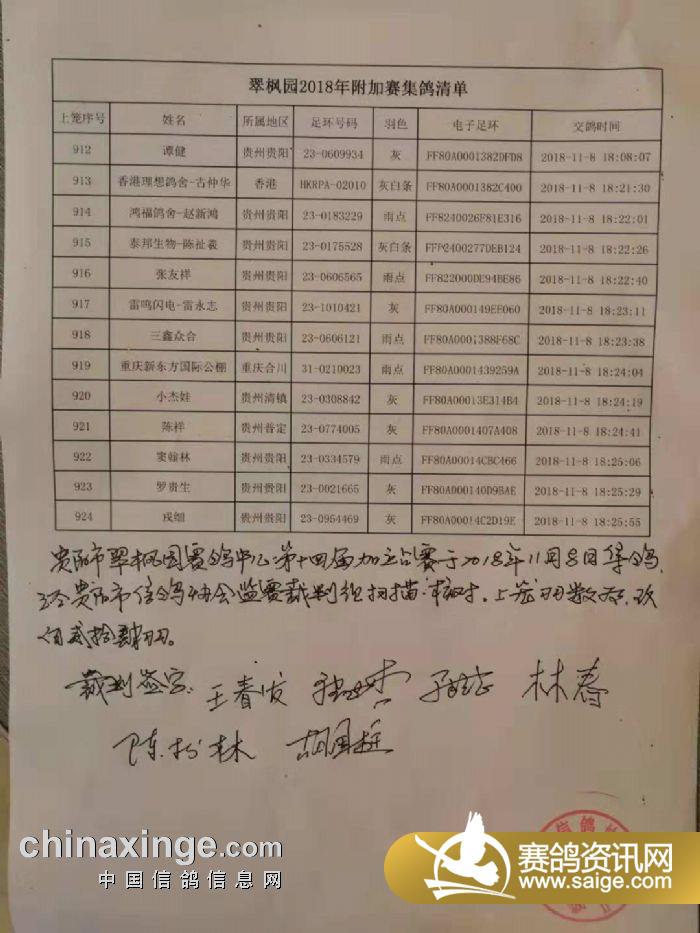 翠枫园2018年附加赛集鸽清单
上笼序号 姓名 所属地区 足环号码 羽色 电子足环 交鸽时间
912 谭健 贵州贵阳 23-0609934 灰 FF80A0001382DFD8 2018-11-8 18:08:07
913 香港理想鸽舍-古仲华 香港 HKRPA-02010 灰白条 FF80A0001382C400 2018-11-8 18:21:30
914 鸿福鸽舍-赵新鸿 贵州贵阳 23-0183229 雨点 FF8240026F81E316 2018-11-8 18:22:01
915 泰邦生物-陈祉羲 贵州贵阳 23-0175528 灰白条 2018-11-8 18:22:26
916 张友祥 贵州贵阳 23-0606565 雨点 FF822000DE94BE86 2018-11-8 18:22:40
917 雷鸣闪电-雷永志 贵州贵阳 23-1010421 灰 FF80A000149EE060 2018-11-8 18:23:11
918 三鑫众合 贵州贵阳 23-0606121 雨点 FF80A0001388F68C 2018-11-8 18:23:38
919 重庆新东方国际公棚 重庆合川 31-0210023 雨点 FF80A0001439259A 2018-11-8 18:24:04
920 小杰娃 贵州清镇 23-0308842 灰 FF80A00013E314B4 2018-11-8 18:24:19
921 陈祥 贵州普定 23-0774005 灰 FF80A0001407A408 2018-11-8 18:24:41
922 窦翰林 贵州贵阳 23-0334579 雨点 FF80A00014CBC466 2018-11-8 18:25:06
923 罗贵生 贵州贵阳 23-0021665 灰 FF80A000140D9BAE 2018-11-8 18:25:29
924 戎细 贵州贵阳 23-0954469 灰 FF80A00014C2D19E 2018-11-8 18:25:55
贵阳市翠枫园赛鸽中心第十四届加站赛于2018年11月8日集鸽,
经贵阳市信鸽协会监赛裁判组扫描·核对,上笼羽数为,玖
佰贰拾肆羽。
裁判签字: 王春发 林春
陈松林 胡国庭
信鸽
chinaxinge.com
中国信鸽信息网
赛鸽资讯网
www.saige.com